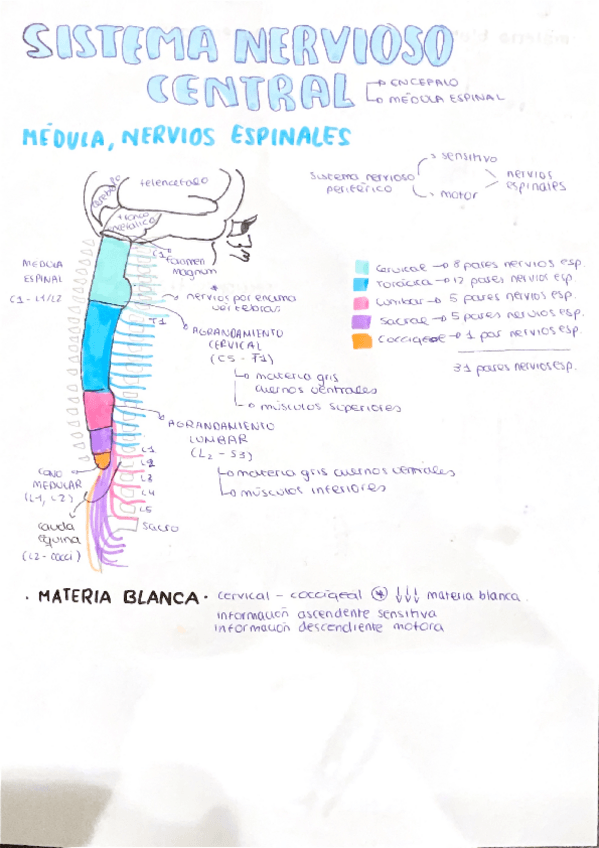 SISTEMA NERVIOSO
CENTRAL
ENCEFALO
MÉDULA ESPINAL
MÉDULA, NERVIOS ESPINALES
sistema nervioso
periférico
sensitivo
motor
nervios
espinales
telencefalo
cerebelo
tronco
encefálico
C1
Foramen
magnum
MEDULA
ESPINAL
C1 - L1/L2
* nervios por encima
vertebras
T1
AGRANDAMIENTO
CERVICAL
(C5 - T1)
materia gris
cuernos ventrales
músculos superiores
cervical → 8 pares nervios esp.
Torácica → 12 pares nervios esp.
Lumbar → 5 pares nervios esp.
Sacral → 5 pares nervios esp.
Coccígeal → 1 par nervios esp.
31 pares nervios esp.
AGRANDAMIENTO
LUMBAR
(L2 - S3)
materia gris cuernos ventrales
músculos inferiores
L1
L2
L3
L4
L5
sacro
CONO
MEDULAR
(L1, L2)
cauda
equina
(L2 - cocci)
· MATERIA BLANCA · cervical - coccígeal * ↓↓↓ materia blanca.
información ascendente sensitiva
información descendiente motora